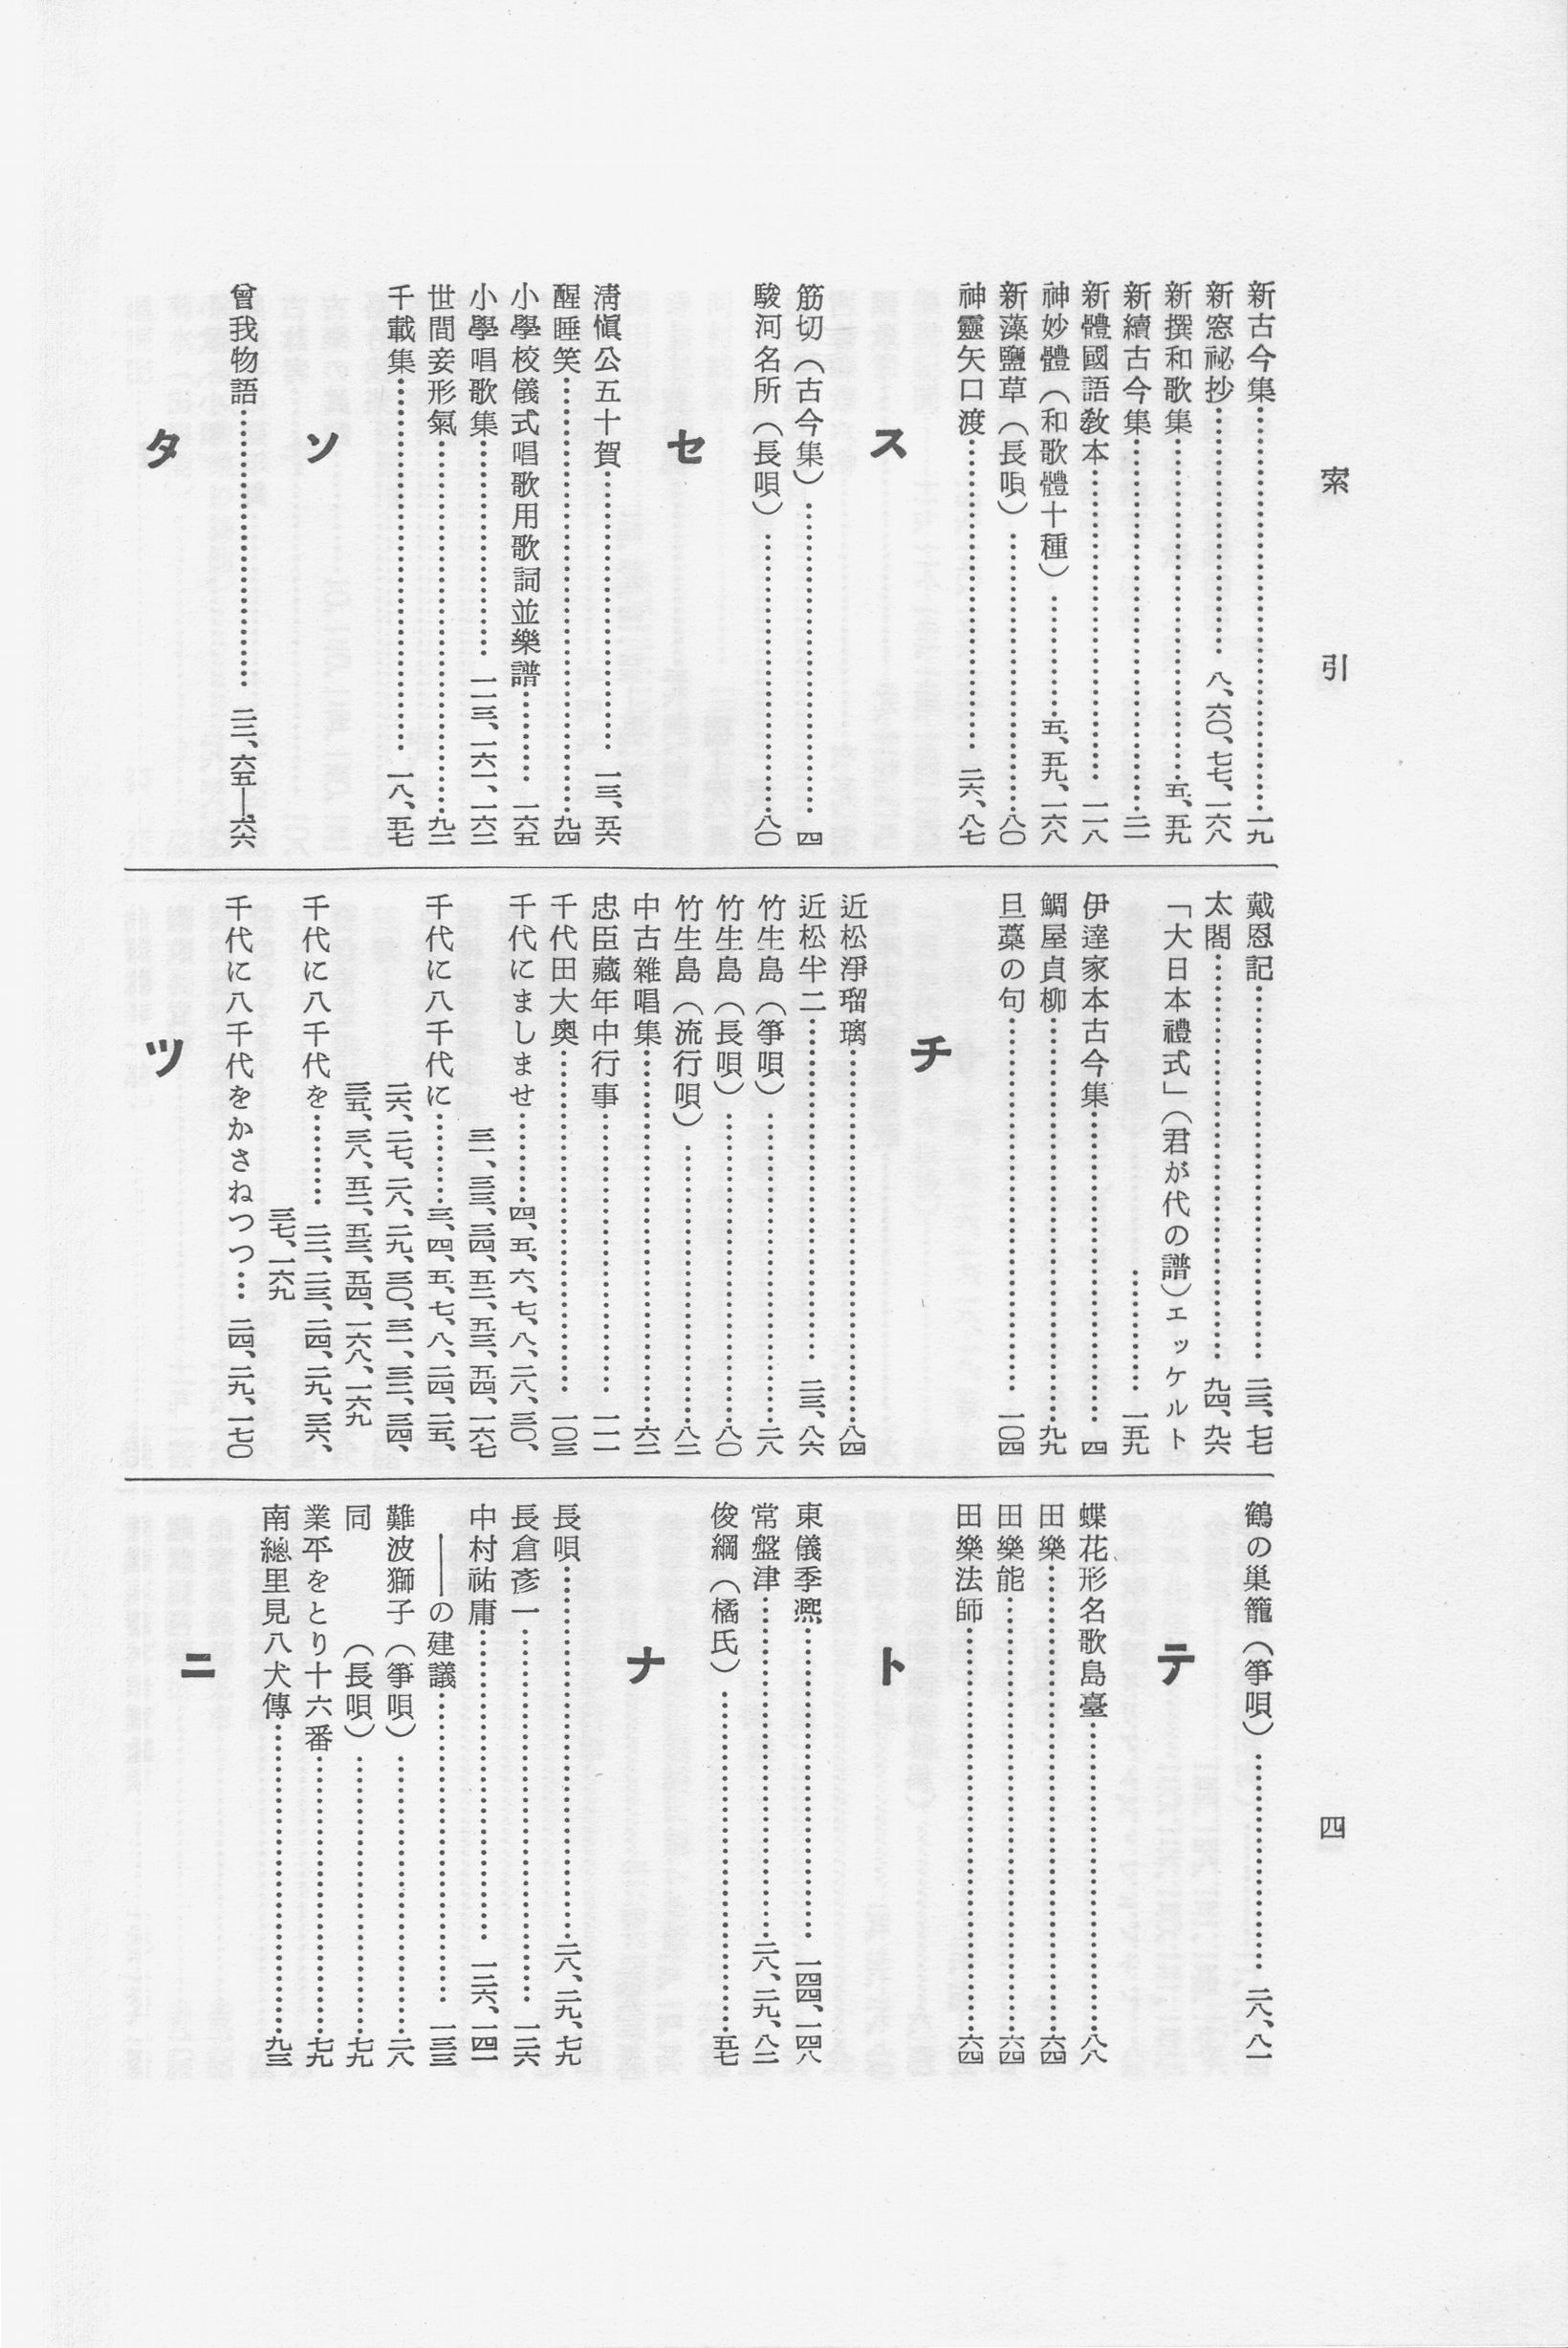 索引
四
新古今集……一九
新窓祕抄……八、六〇、七七、一六八
新撰和歌集……五、五九
新續古今集……二一
新體國語敎本……一一八
神妙體（和歌體十種）……五、五九、一六八
新藻鹽草（長唄）……八〇
神靈矢口渡……二六、八七
ス
筋切（古今集）……四
駿河名所（長唄）……八〇
セ
淸愼公五十賀……一三、五六
醒睡笑……九四
小學校儀式唱歌用歌詞並樂譜……一六五
小學唱歌集……一一三、一六一、一六二
世間妾形氣……九二
千載集……一八、五七
ソ
曾我物語……二二、六五―六六
タ
戴恩記……二三、七七
太閤……九四、九六
「大日本禮式」（君が代の譜）エッケルト
……一五九
伊達家本古今集……四
鯛屋貞柳……九九
旦藁の句……一〇四
チ
近松淨瑠璃……八四
近松半二……二三、八六
竹生島（箏唄）……二八
竹生島（長唄）……八〇
竹生島（流行唄）……八二
中古雜唱集……六二
忠臣藏年中行事……一一一
千代田大奧……一〇三
千代にましませ……四、五、六、七、八、二八、三〇、
三一、三三、三四、五二、五三、五四、一六七
千代に八千代に……三、四、五、七、八、二四、二五、
二六、二七、二八、二九、三〇、三一、三三、三四、
三五、三八、五二、五三、五四、一六八、一六九
千代に八千代を……二二、二三、二四、二九、三六、
三七、一六九
千代に八千代をかさねつつ…二四、二九、一七〇
ツ
鶴の巢籠（箏唄）……二八、八一
テ
蝶花形名歌島臺……八八
田樂……六四
田樂能……六四
田樂法師……六四
ト
東儀季凞……一四四、一四八
常盤津……二八、二九、八二
俊綱（橘氏）……五七
ナ
長唄……二八、二九、七九
長倉彥一……一二六
中村祐庸……一二六、一四一
――の建議……一三三
難波獅子（箏唄）……二八
同　　（長唄）……七九
業平をとり十六番……七九
南總里見八犬傳……九三
ニ